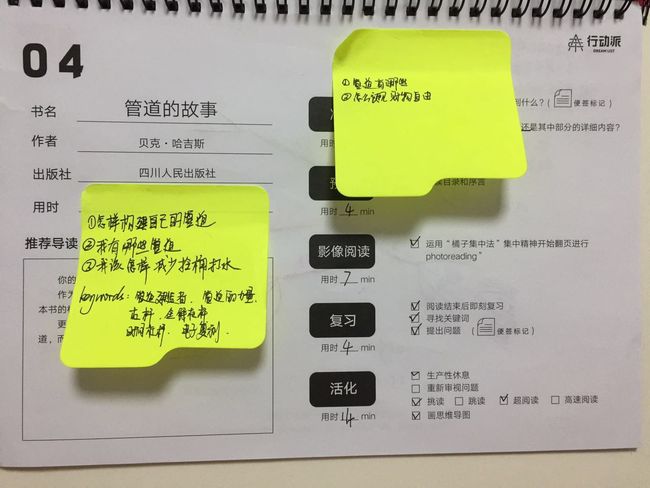 04
行动派
DREAM LIST
书名 管道的故事
作者 贝克·哈吉斯
出版社 四川人民出版社
用时
推荐导读
你的
作为
本书的
更
道，而
①怎样构建自己的管道
②我有哪些管道
③我该怎样减少拎桶打水
keywords: 管道建造者, 管道的力量,
杠杆, 金钱杠杆
时间杠杆, 电子复利.
①管道有哪些
②怎么实现财务自由
到什么？（便签标记）
还是其中部分的详细内容？
用时 min
预
读目录和序言
用时 4 min
影像阅读
运用“橘子集中法”集中精神开始翻页进行
photoreading”
用时 7 min
复习
阅读结束后即刻复习
寻找关键词
提出问题 （便签标记）
用时 4 min
活化
生产性休息
重新审视问题
挑读 跳读 超阅读 高速阅读
画思维导图
用时 14 min